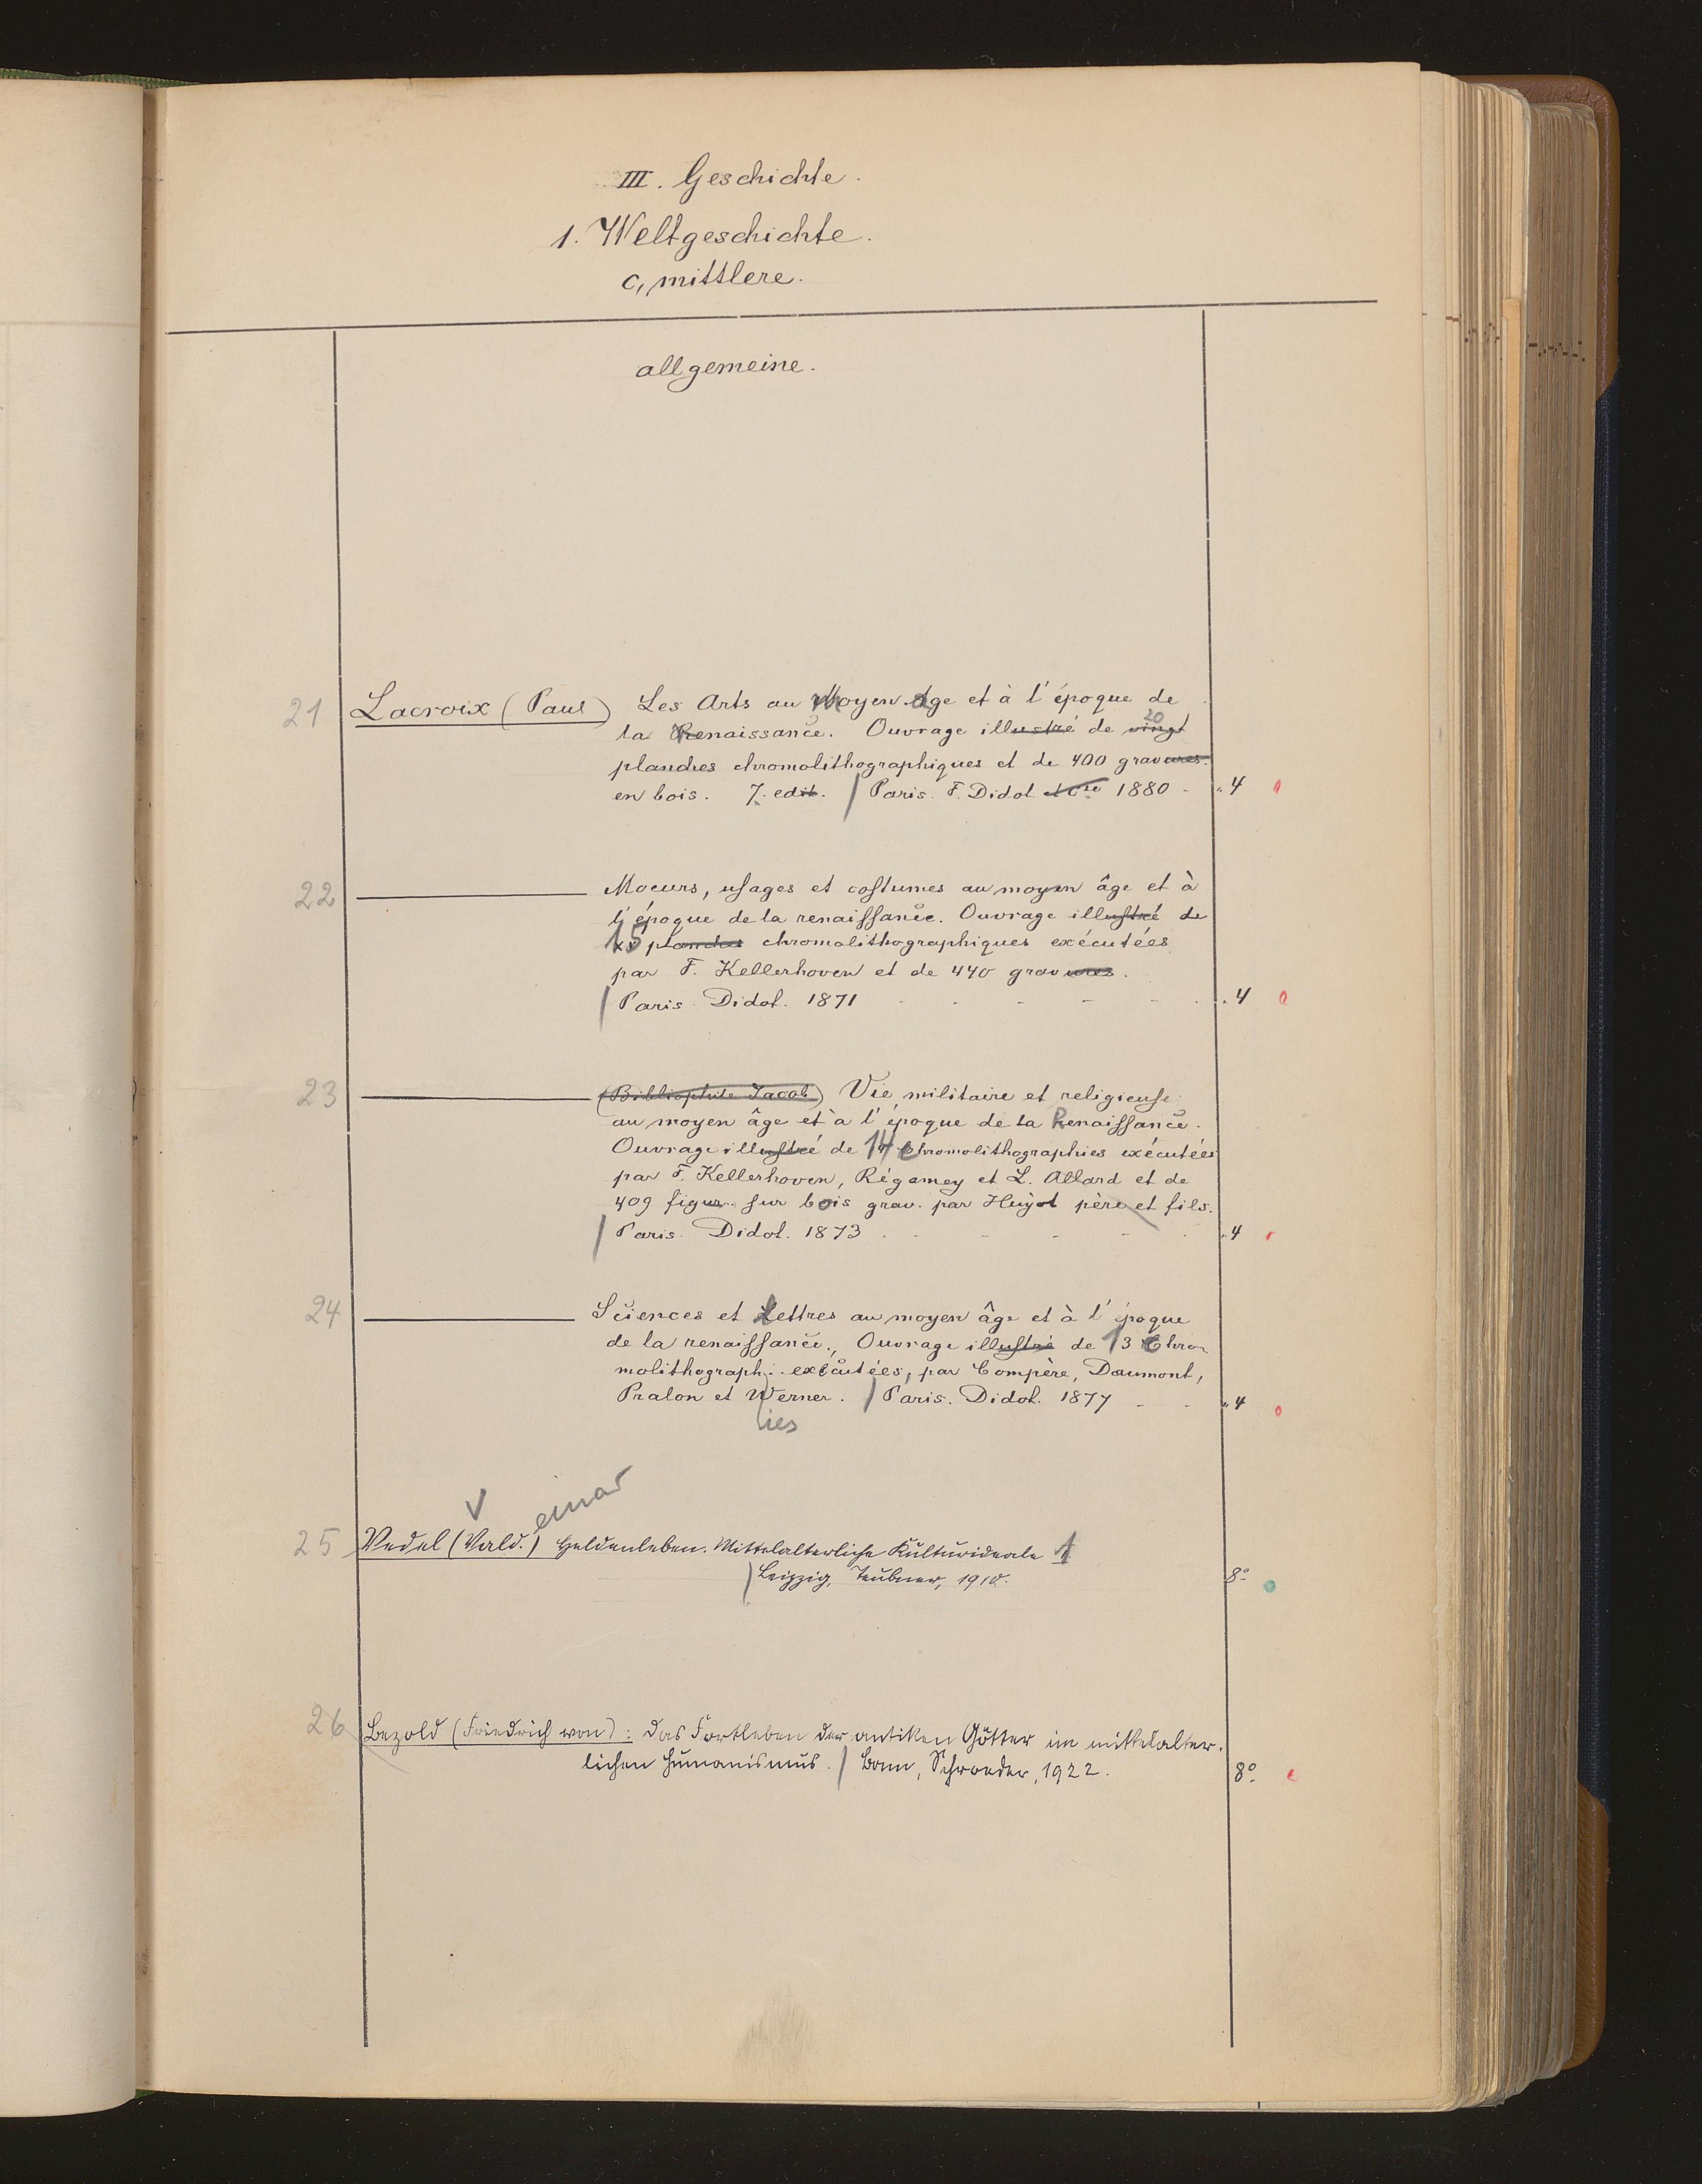 III. Geschichte.
1. Weltgeschichte.
c, mittlere.
allgemeine.
21 Lacroix (Paul) Les Arts au Moyen age et à l'époque de
la Renaissance. Ouvrage illustré de vingt 20
planches chromolithographiques et de 400 gravures
en bois. 7. edit. / Paris. F. Didot et Cie 1880 - " 4
22 Moeurs, usages et costumes au moyen âge et à
l'époque de la renaissance. Ouvrage illustré de
15 planches chromolithographiques exécutées
par F. Kellerhoven et de 440 gravures.
/ Paris. Didot. 1871 - - - - " 4
23 (Bibliophile Jacob) Vie militaire et religieuse
au moyen âge et à l'époque de la Renaissance.
Ouvrage illustré de 14 chromolithographies exécutées
par F. Kellerhoven, Régamey et L. Allard et de
409 figur. sur bois grav. par Huyot père et fils.
/ Paris. Didot. 1873 - - - - " 4
24 Sciences et Lettres au moyen âge et à l'époque
de la renaissance., Ouvrage illustré de 13 Chro-
molithograph. exécutées, par Compère, Daumont,
Pralon et Werner. / Paris. Didot. 1877 - - " 4
ies
V emar
25 Vedel (Vald.) Heldenleben. Mittelalterliche Kulturideale 1
/ Leipzig, Teubner, 1910. 8°
26 Bezold (Friedrich von): Das Fortleben der antiken Götter im mittelalter-
lichen Humanismus. / Bonn, Schroeder, 1922. 8°